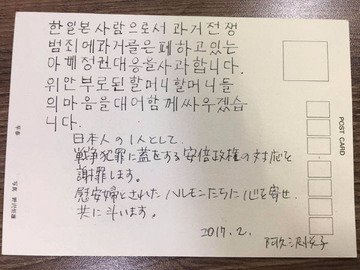 한일본사람으로서 과거전쟁
범죄에과거를은폐하고있는
아베정권대응을사과합니다.
위안부로된할머니할머니들
의마음을대어함께싸우겠습
니다.
日本人の1人として、
戦争犯罪に蓋をする安倍政権の対応を
謝罪します。
慰安婦とされたハルモニたちに心を寄せ
共に斗います。
2017.2.
POST CARD